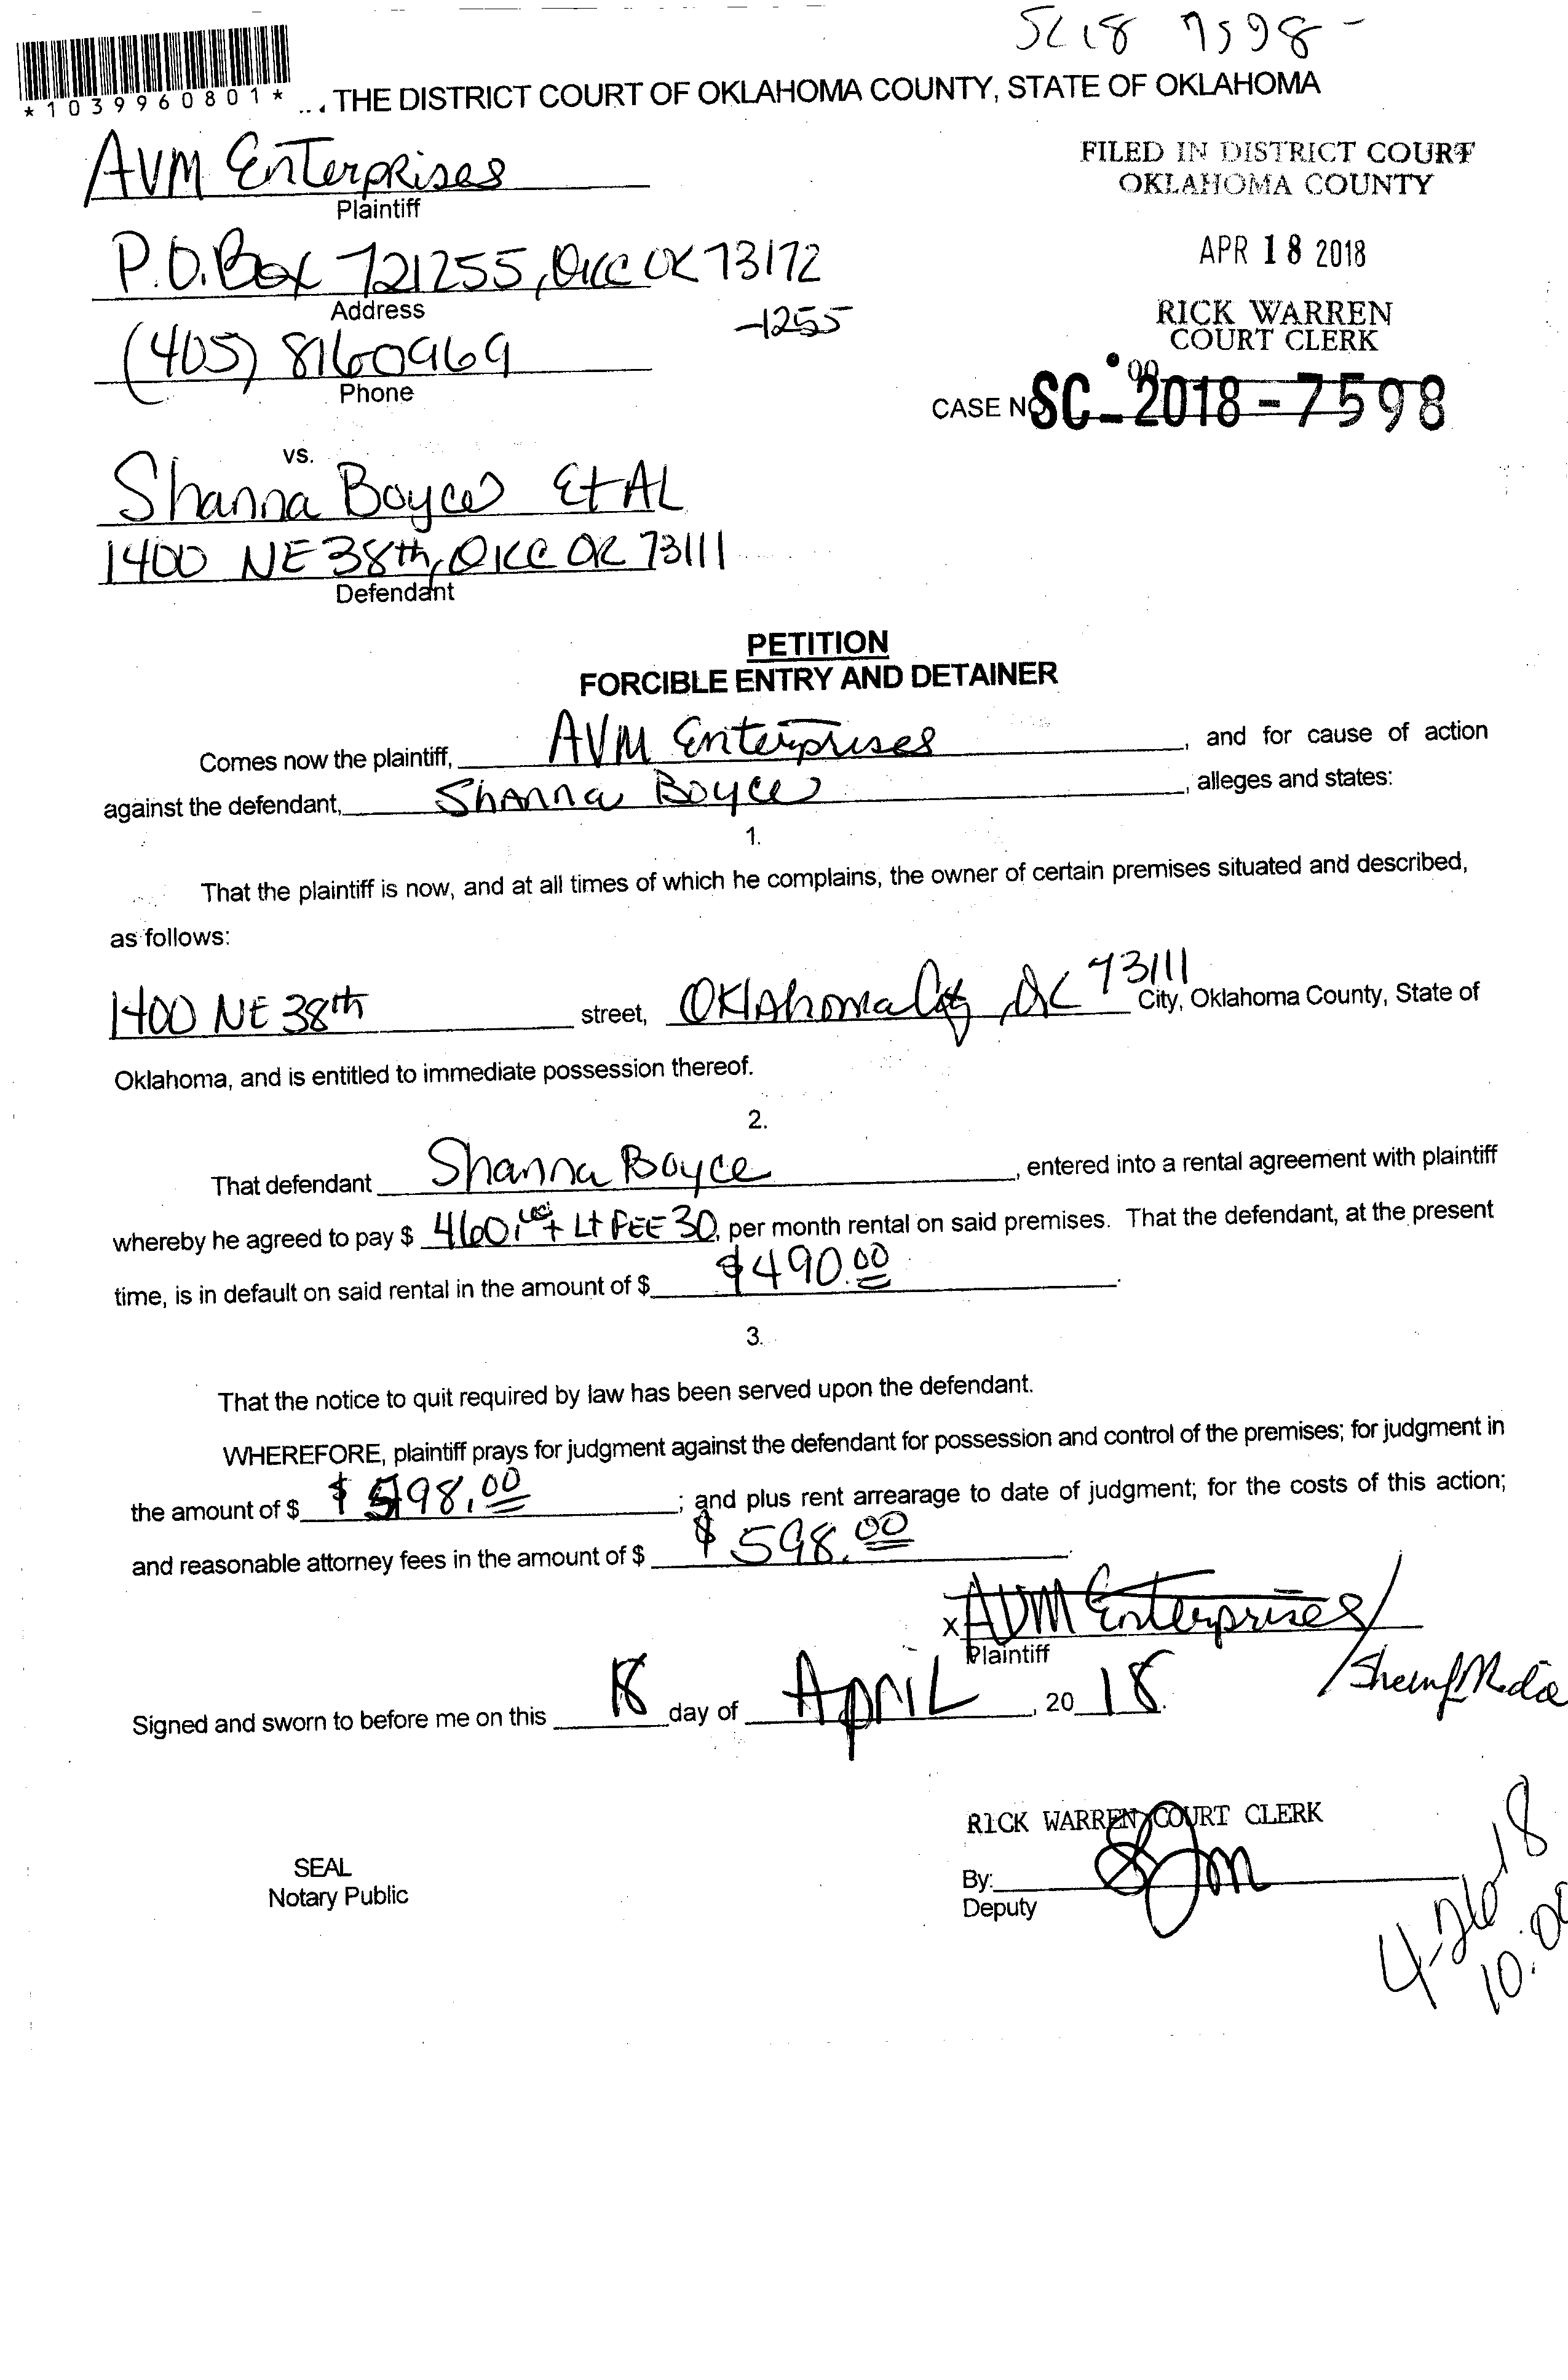 SC18 7598-
*1039960801* ... THE DISTRICT COURT OF OKLAHOMA COUNTY, STATE OF OKLAHOMA
AVM Enterprises
Plaintiff
FILED IN DISTRICT COURT
OKLAHOMA COUNTY
P.O. Box 721255, OKC OK 73172
-1255
Address
APR 18 2018
(405) 8160969
Phone
RICK WARREN
COURT CLERK
CASE NO SC-2018-7598
vs.
Shanna Boyce Et AL
1400 NE 38th, OKC OK 73111
Defendant
PETITION
FORCIBLE ENTRY AND DETAINER
Comes now the plaintiff, AVM Enterprises, and for cause of action
against the defendant, Shanna Boyce, alleges and states:
1.
That the plaintiff is now, and at all times of which he complains, the owner of certain premises situated and described,
as follows:
1400 NE 38th street, Oklahoma City, OK 73111 City, Oklahoma County, State of
Oklahoma, and is entitled to immediate possession thereof.
2.
That defendant Shanna Boyce, entered into a rental agreement with plaintiff
whereby he agreed to pay $ 460.00 + Lt FEE 30, per month rental on said premises. That the defendant, at the present
time, is in default on said rental in the amount of $ $490.00.
3.
That the notice to quit required by law has been served upon the defendant.
WHEREFORE, plaintiff prays for judgment against the defendant for possession and control of the premises; for judgment in
the amount of $ $ 598.00; and plus rent arrearage to date of judgment; for the costs of this action;
and reasonable attorney fees in the amount of $ $ 598.00.
x AVM Enterprises/
Plaintiff
Signed and sworn to before me on this 18 day of April, 20 18.
RICK WARREN COURT CLERK
SEAL
Notary Public
By:
Deputy
4-26-18
10:00